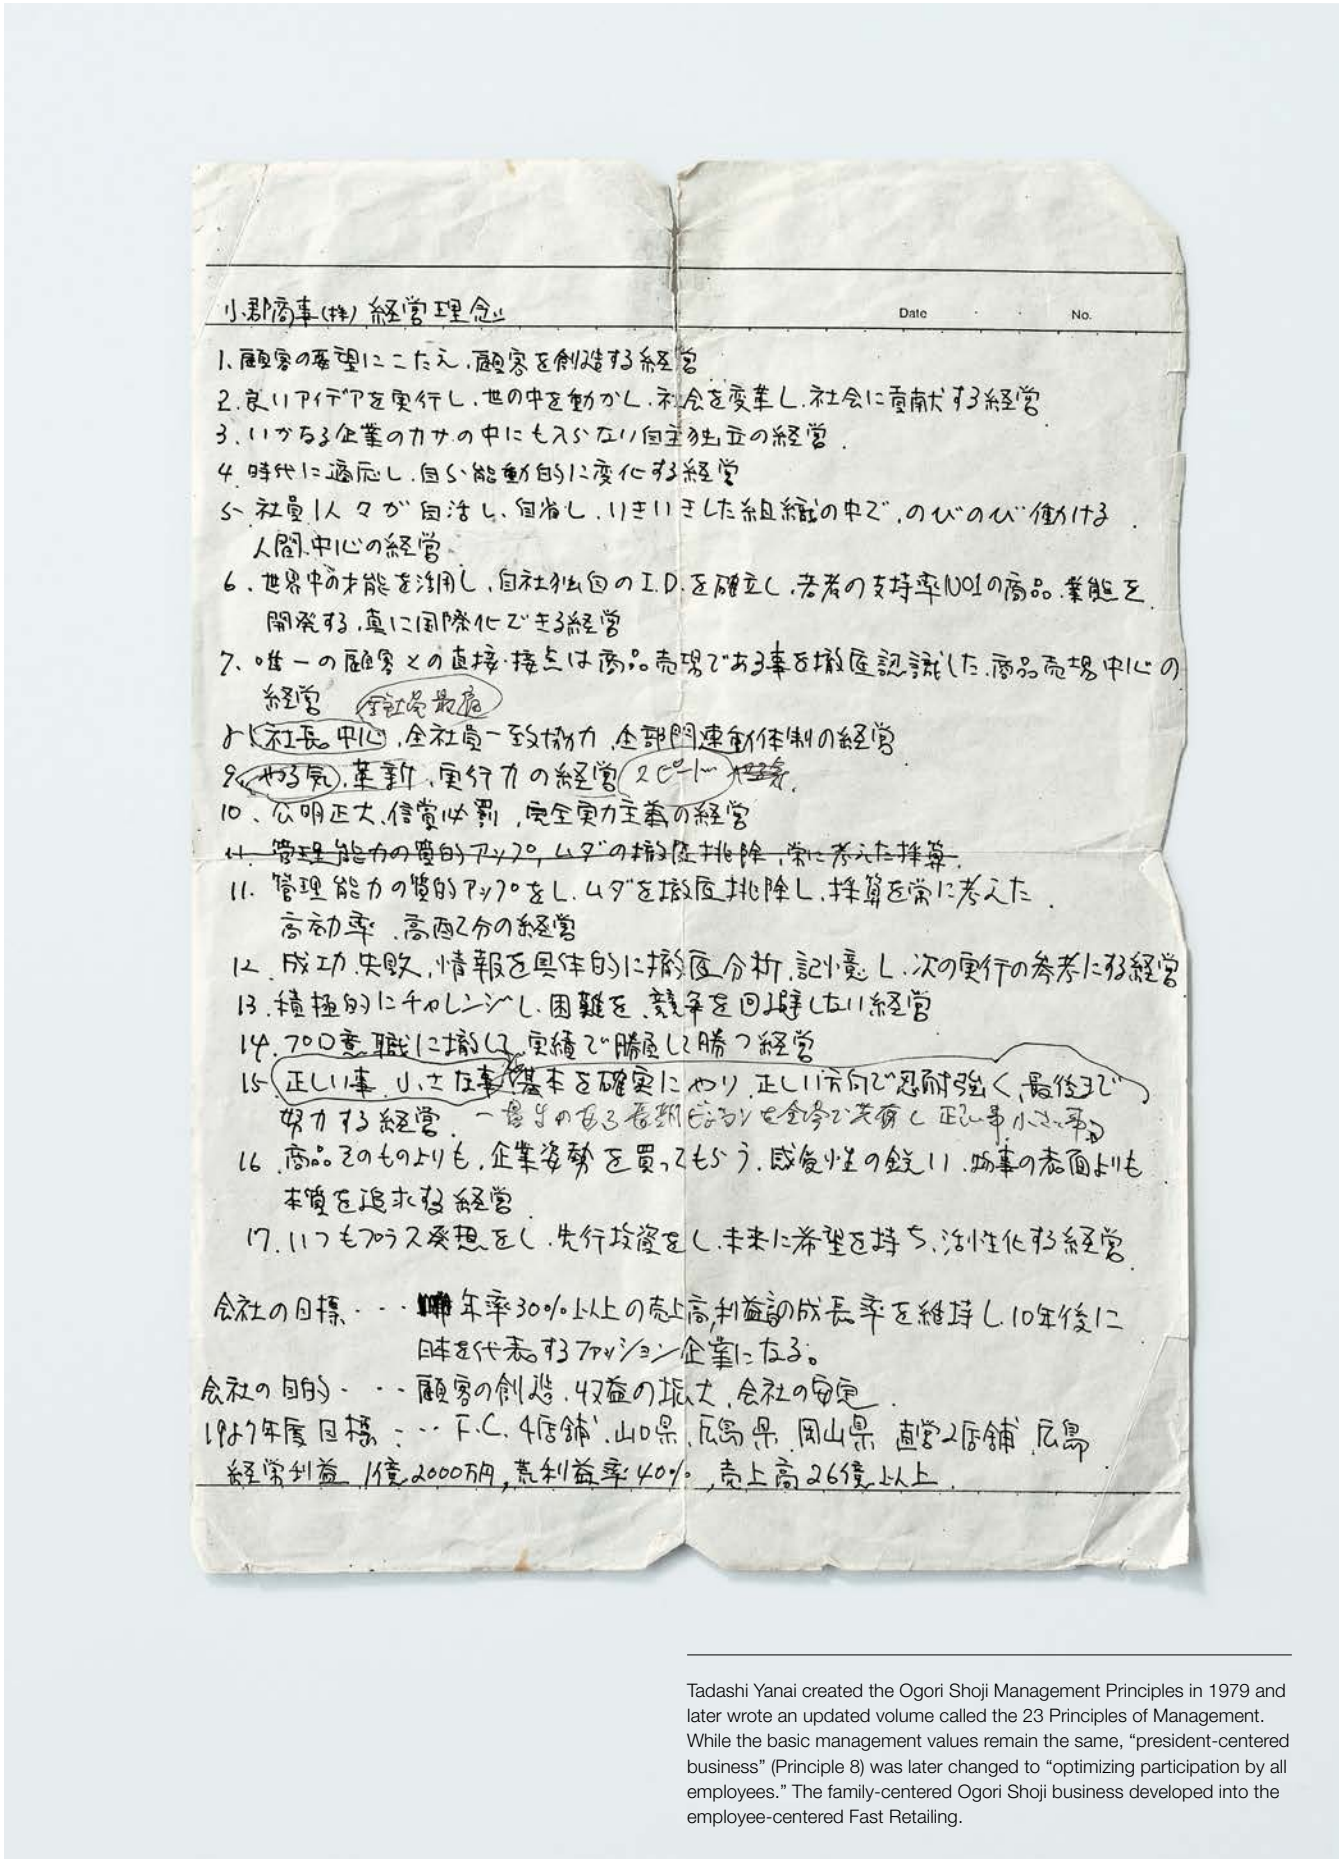 小郡商事(株) 経営理念
Date ・ ・ No.
1. 顧客の要望にこたえ、顧客を創造する経営
2. 良いアイデアを実行し、世の中を動かし、社会を変革し、社会に貢献する経営
3. いかなる企業のカサの中にも入らない自主独立の経営
4. 時代に適応し、自ら能動的に変化する経営
5. 社員1人々が自活し、自省し、いきいきした組織の中で、のびのび働ける
人間中心の経営
6. 世界中の才能を活用し、自社独自のI.D.を確立し、若者の支持率NO1の商品、業態を
開発する、真に国際化できる経営
7. 唯一の顧客との直接接点は商品売場である事を徹底認識した、商品売場中心の
経営
全社員最適
8. 社長中心、全社員一致協力、全部門連動体制の経営
9. やる気、革新、実行力の経営 スピード
10. 公明正大、信賞必罰、完全実力主義の経営
11. 管理能力の質的アップ, ムダの徹底排除、常に考えた採算
11. 管理能力の質的アップをし、ムダを徹底排除し、採算を常に考えた
高効率、高配分の経営
12. 成功、失敗、情報を具体的に徹底分析、記憶し、次の実行の参考にする経営
13. 積極的にチャレンジし、困難を、競争を回避しない経営
14. プロ意職に撤して、実績で勝負して勝つ経営
15. 正しい事、小さな事、基本を確実にやり、正しい方向で忍耐強く、最後まで
努力する経営 一貫性のある長期ビジョンを全体で共有し 正しい事 小さな事
16. 商品そのものよりも、企業姿勢を買ってもらう、感受性の鋭い、物事の表面よりも
本質を追求する経営
17. いつもプラス発想をし、先行投資をし、未来に希望を持ち、活性化する経営
会社の目標・・・ 年率30%以上の売上高,利益の成長率を維持し、10年後に
日本を代表するファッション企業になる。
会社の目的・・・顧客の創造、収益の拡大、会社の安定
1987年度目標・・・F.C. 4店舗、山口県、広島県、岡山県 直営2店舗、広島
経常利益 1億2000万円, 荒利益率40%, 売上高26億以上
Tadashi Yanai created the Ogori Shoji Management Principles in 1979 and
later wrote an updated volume called the 23 Principles of Management.
While the basic management values remain the same, “president-centered
business” (Principle 8) was later changed to “optimizing participation by all
employees.” The family-centered Ogori Shoji business developed into the
employee-centered Fast Retailing.